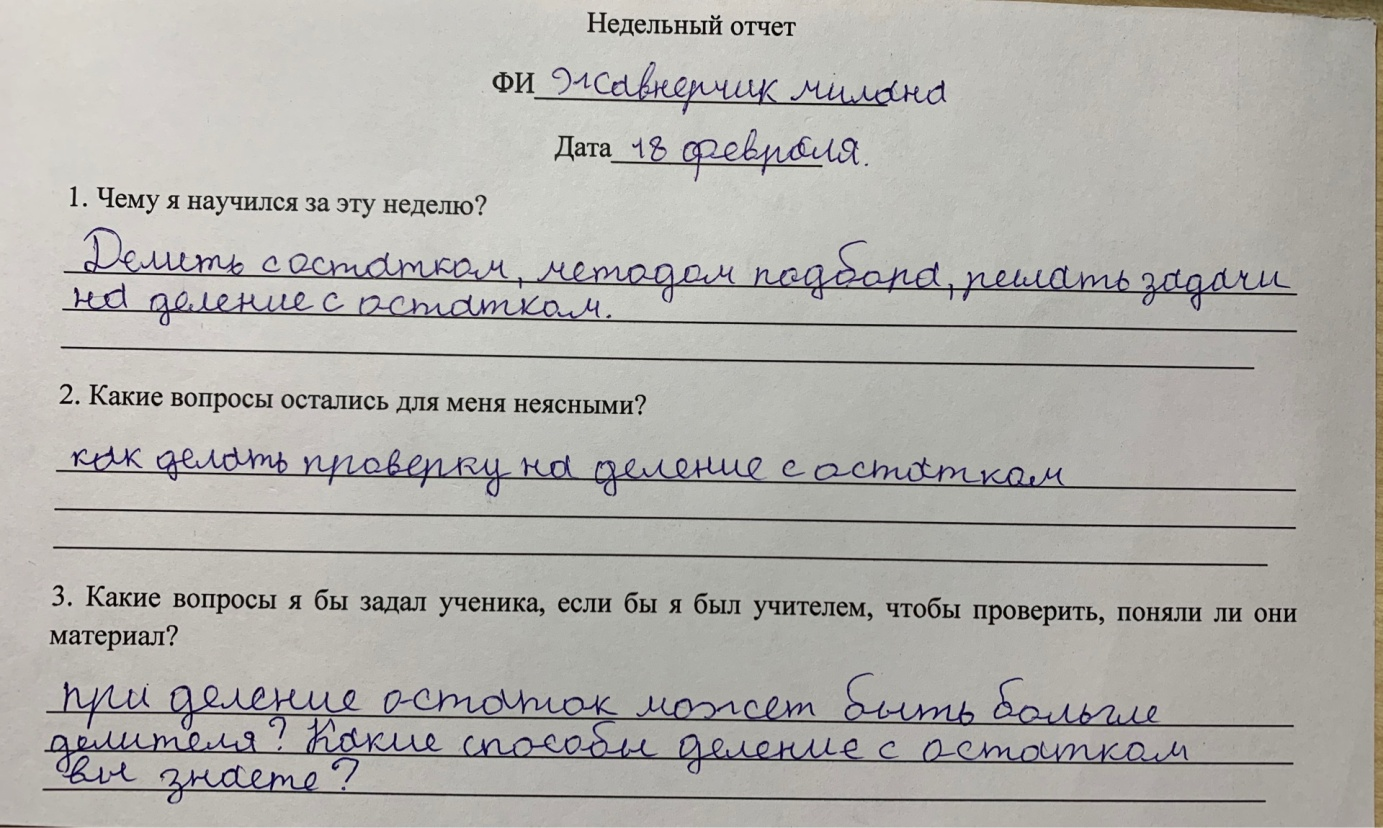 Недельный отчет
ФИ Жавнерчик милана
Дата 18 февраля.
1. Чему я научился за эту неделю?
Делить с остатком, методом подбора, решать задачи
на деление с остатком.
2. Какие вопросы остались для меня неясными?
как делать проверку на деление с остатком
3. Какие вопросы я бы задал ученика, если бы я был учителем, чтобы проверить, поняли ли они
материал?
при деление остаток может быть больше
делителя? Какие способы деление с остатком
вы знаете?